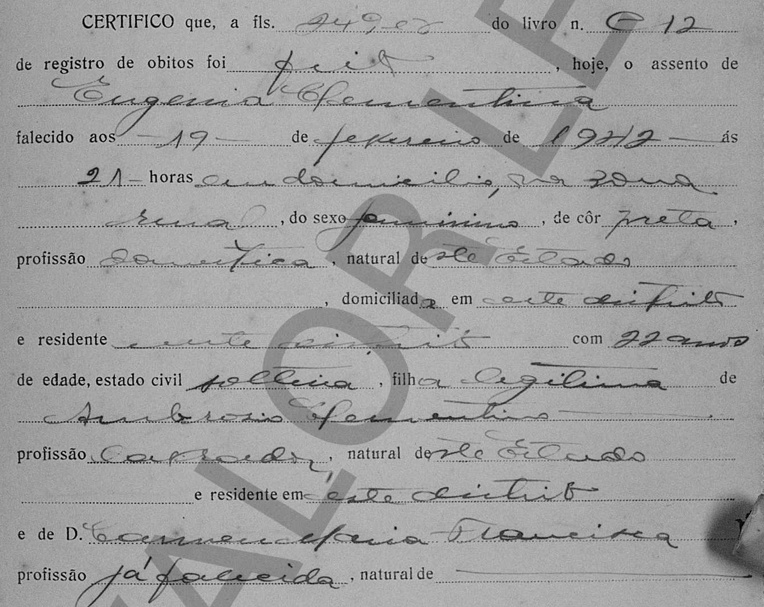 CERTIFICO que, a fls. 249 do livro n. C 12
de registro de obitos foi feito, hoje, o assento de
Eugenia Clementina
falecido aos - 19 - de fevereiro de 1942 - ás
21 - horas em domicilio, na zona
rural, do sexo feminino, de côr preta,
profissão domestica, natural deste Estado
, domiciliada em neste distrito
e residente neste distrito com 22 anos
de edade, estado civil solteira, filha legitima de
Ambrosio Clementino
profissão lavrador, natural deste Estado
e residente em este distrito
e de D. Carmen Maria Francisca
profissão já falecida, natural de
VALOR LE